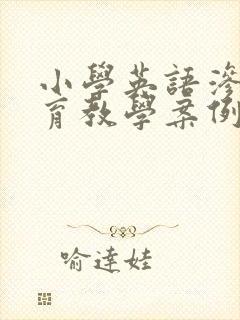 小學英語滲
育教學案例
喻達娃